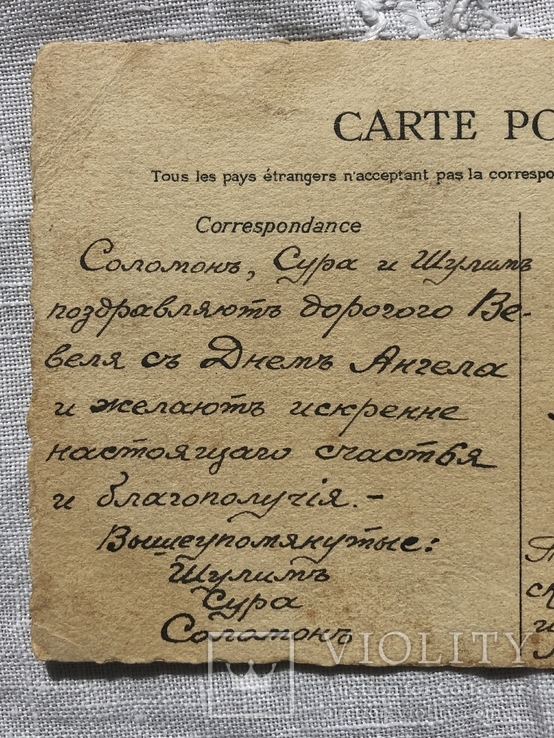 CARTE PO
Tous les pays étrangers n'acceptant pas la correspo
Correspondance
Соломонъ, Сура и Шулимъ
поздравляютъ дорогого Ве-
веля съ Днемъ Ангела
и желаютъ искренне
настоящаго счастья
и благополучія.-
Вышеупомянутые:
Шулимъ
Сура
Соломонъ
VIOLITY